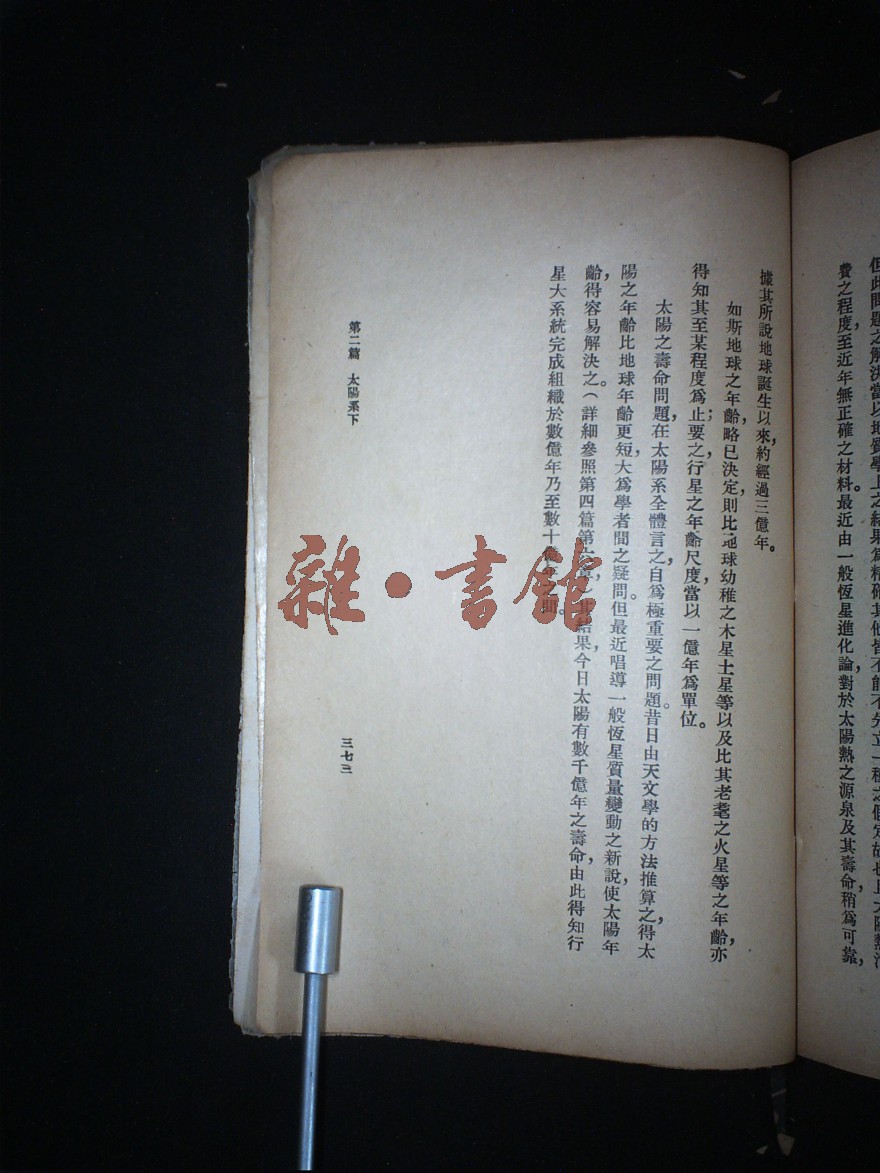 但此問題之解決當以地質學上之結果爲精確其他皆不能不先立一種之假定故也上太陽熱
費之程度，至近年無正確之材料。最近由一般恆星進化論，對於太陽熱之源泉及其壽命，稍爲可靠，
據其所說，地球誕生以來，約經過三億年。
如斯地球之年齡，略已決定，則比地球幼稚之木星土星等以及比其老耄之火星等之年齡，亦
得知其至某程度爲止；要之，行星之年齡尺度，當以一億年爲單位。
太陽之壽命問題，在太陽系全體言之，自爲極重要之問題。昔日由天文學的方法推算之，得太
陽之年齡比地球年齡更短，大爲學者間之疑問。但最近唱導一般恆星質量變動之新說，使太陽年
齡，得容易解決之。（詳細參照第四篇第 結果，今日太陽有數千億年之壽命，由此得知行
星大系統完成組織於數億年乃至數十 前。
第二篇 太陽系下
三七三
雜·書館